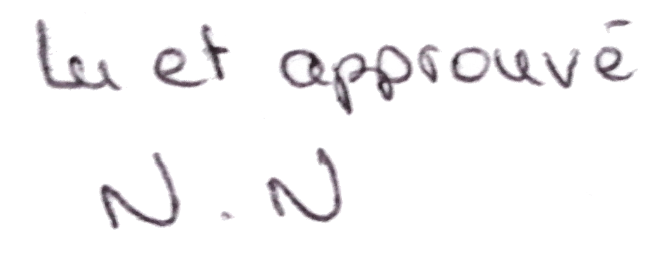 Lu et approuvé
N.N